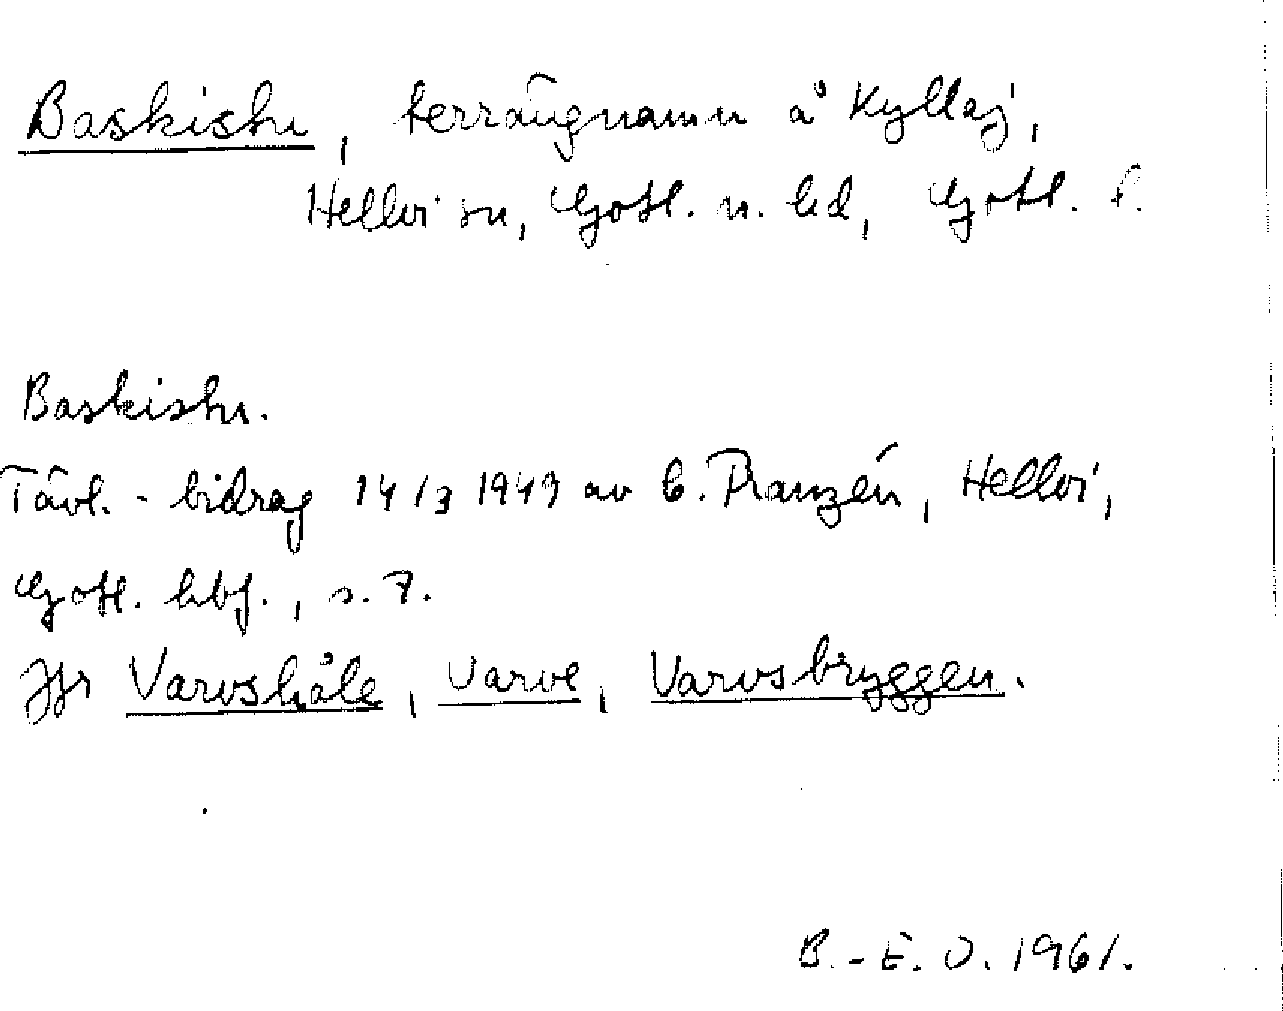 Baskistu, terrängnamn å Kyllaj,
Hellvi sn, Gotl. n. hd, Gotl. l.
Baskistu.
Tävl.-bidrag 14/3 1949 av G. Franzén, Hellvi,
Gotl. hbf., s. 7.
Jfr Varvshåle, Varve, Varvsbryggen.
B.-E. O. 1961.